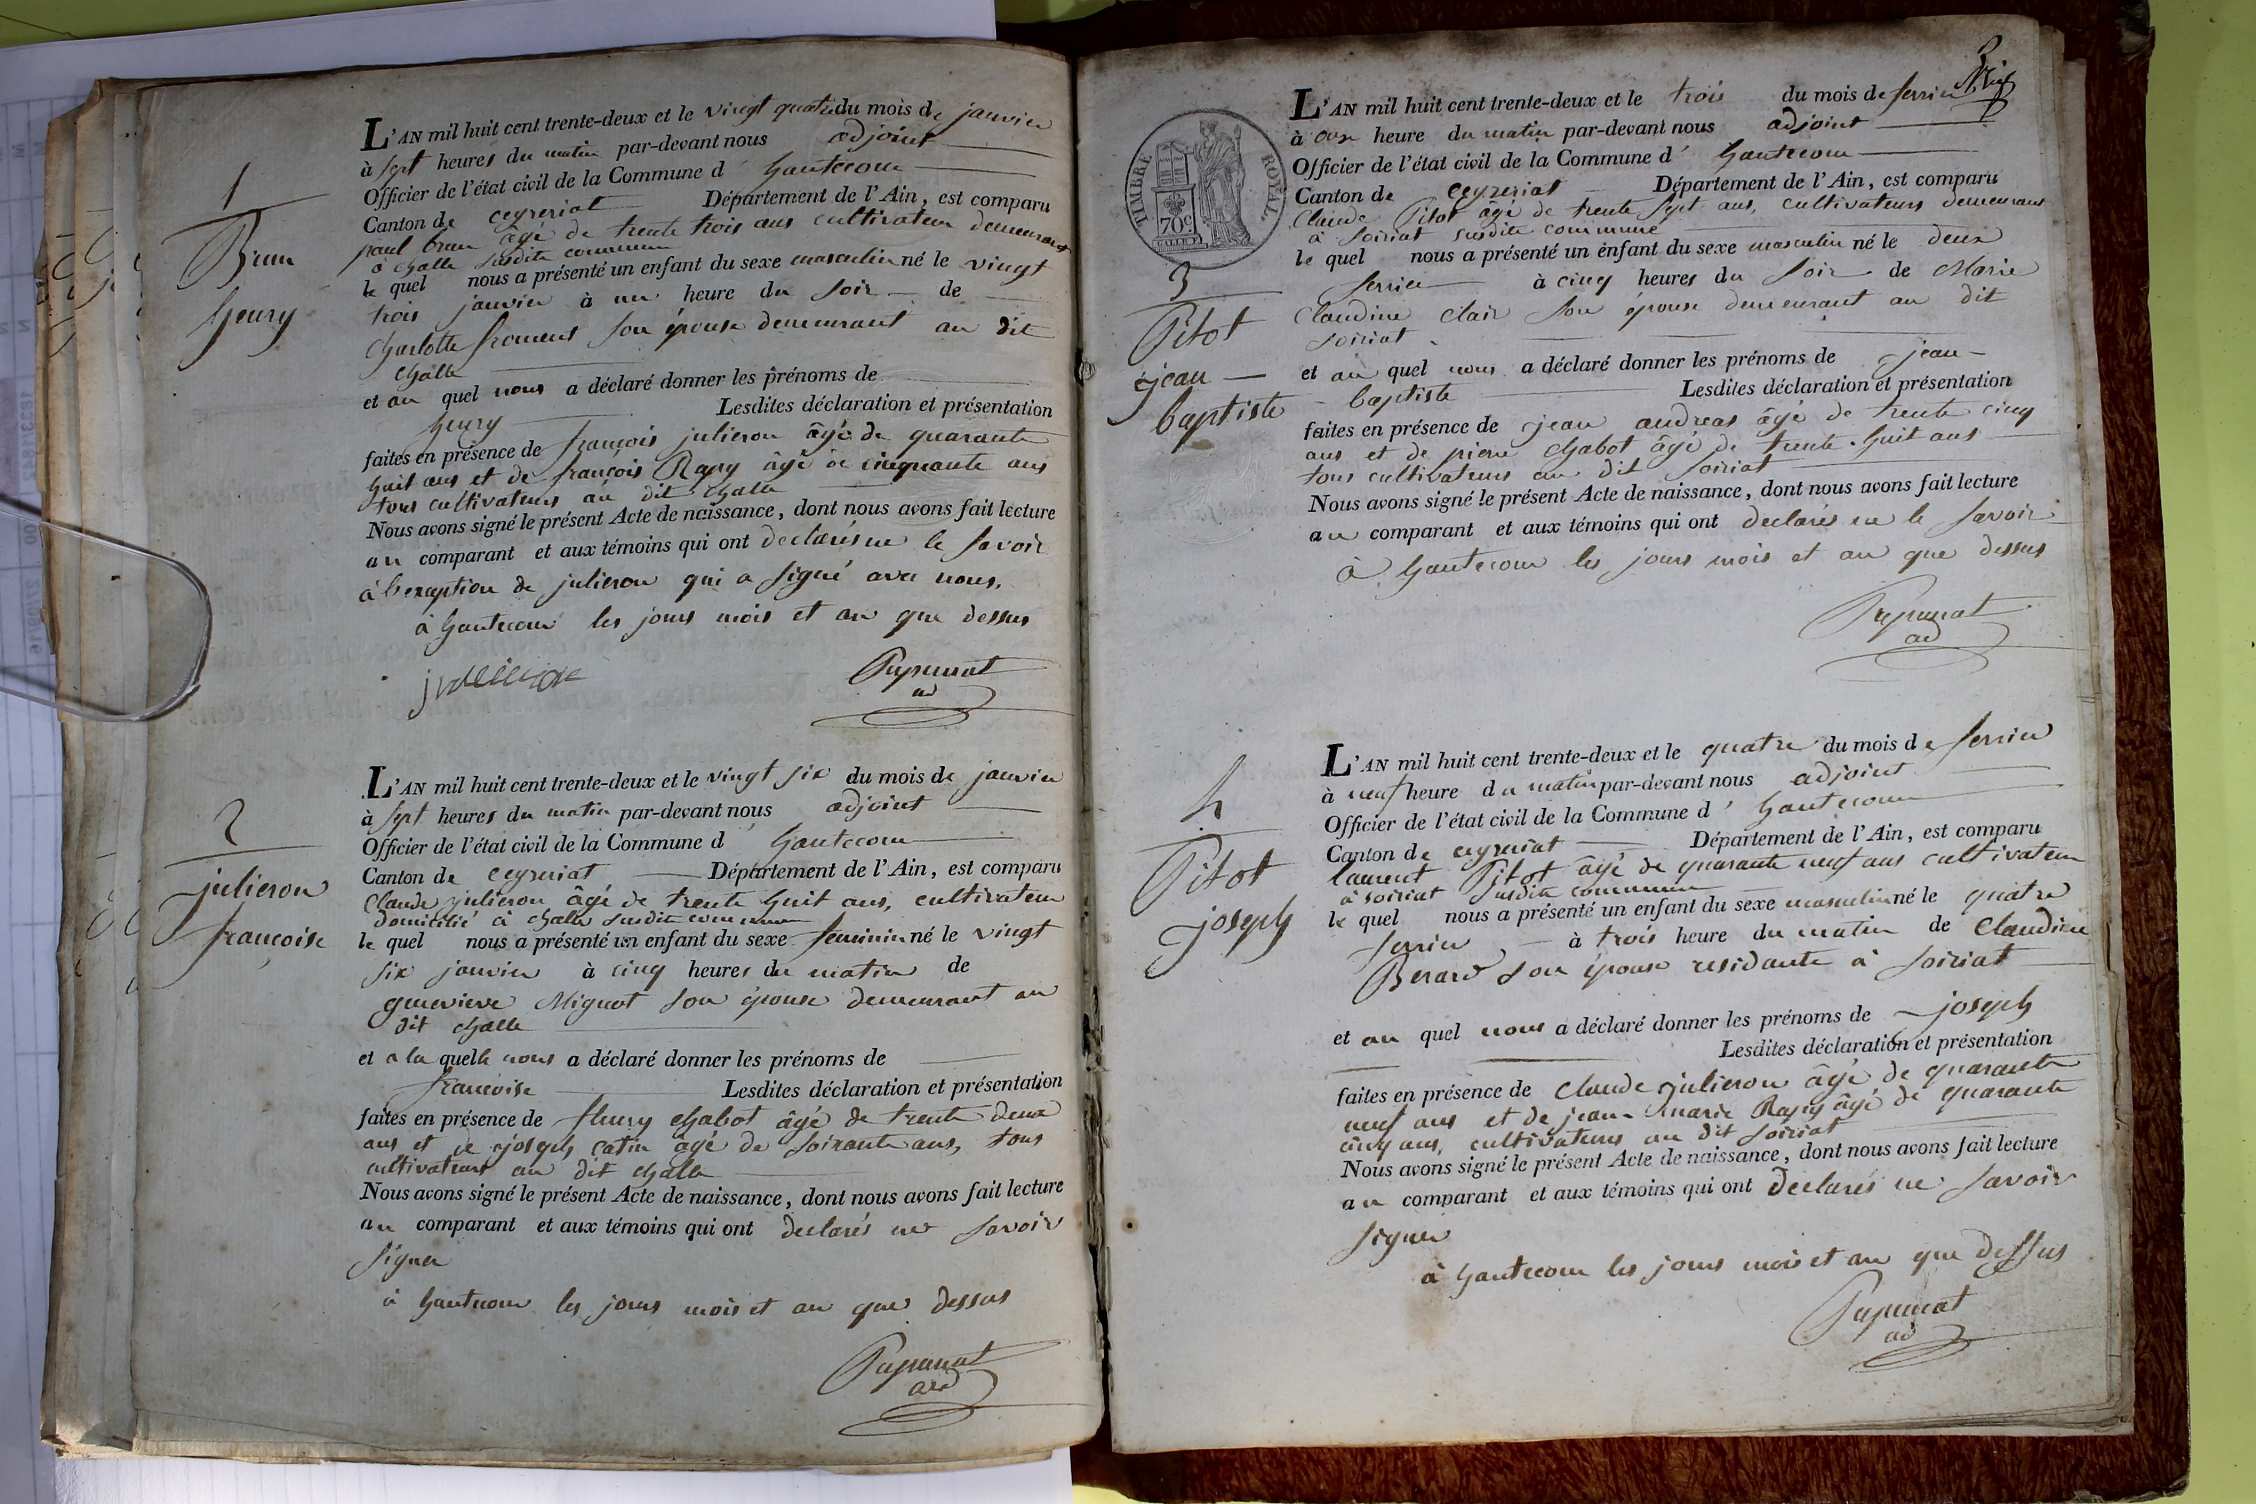 1
Brun
henry
L'AN mil huit cent trente-deux et le vingt quatre du mois de janvier
à sept heures du matin par-devant nous adjoint
Officier de l'état civil de la Commune d' hautecour
Canton de ceyzeriat Département de l'Ain, est comparu
paul brun âgé de trente trois ans cultivateur demeurant
à challe susdite commune
le quel nous a présenté un enfant du sexe masculin né le vingt
trois janvier à une heure du soir de
charlotte froment son épouse demeurant au dit
challe
et au quel nous a déclaré donner les prénoms de
henry Lesdites déclaration et présentation
faites en présence de françois julieron âgé de quarante
huit ans et de françois Rapy âgé de cinquante ans
tous cultivateurs au dit challe
Nous avons signé le présent Acte de naissance, dont nous avons fait lecture
au comparant et aux témoins qui ont declarés ne le savoir
à l'exeption de julieron qui a signé avec nous.
à hautecour les jours mois et an que dessus
julieron
ad
2
julieron
françoise
L'AN mil huit cent trente-deux et le vingt six du mois de janvier
à sept heures du matin par-devant nous adjoint
Officier de l'état civil de la Commune d' hautecour
Canton de ceyzeriat Département de l'Ain, est comparu
Claude julieron âgé de trente huit ans, cultivateur
domicilié à challe susdite commune
le quel nous a présenté un enfant du sexe feminin né le vingt
six janvier à cinq heures du matin de
genevieve Mignot son épouse demeurant au
dit challe
et a la quelle nous a déclaré donner les prénoms de
francoise Lesdites déclaration et présentation
faites en présence de fleury chabot âgé de trente deux
ans et de joseph catin âgé de soixante ans, tous
cultivateurs au dit challe
Nous avons signé le présent Acte de naissance, dont nous avons fait lecture
au comparant et aux témoins qui ont declarés ne savoir
signer
à hautecour les jours mois et an que dessus
ad
3
TIMBRE ROYAL
70c.
3
Pitot
jean
baptiste
L'AN mil huit cent trente-deux et le trois du mois de fevrier
à onze heure du matin par-devant nous adjoint
Officier de l'état civil de la Commune d' hautecour
Canton de ceyzeriat Département de l'Ain, est comparu
Claude Pitot âgé de trente sept ans, cultivateurs demeurant
à soiriat susdite commune
le quel nous a présenté un enfant du sexe masculin né le deux
fevrier à cinq heures du soir de Marie
Claudine Clair son épouse demeurant au dit
soiriat.
et au quel nous a déclaré donner les prénoms de jean
baptiste Lesdites déclaration et présentation
faites en présence de jean andreas âgé de trente cinq
ans et de pierre chabot âgé de trente huit ans
tous cultivateurs au dit soiriat
Nous avons signé le présent Acte de naissance, dont nous avons fait lecture
au comparant et aux témoins qui ont declarés ne le savoir
à hautecour les jours mois et an que dessus
ad
4
Pitot
joseph
L'AN mil huit cent trente-deux et le quatre du mois de fevrier
à neuf heure du matin par-devant nous adjoint
Officier de l'état civil de la Commune d' hautecour
Canton de ceyzeriat Département de l'Ain, est comparu
laurent Pitot âgé de quarante neuf ans cultivateur
à soiriat susdite commune
le quel nous a présenté un enfant du sexe masculin né le quatre
fevrier à trois heure du matin de Claudine
Berard son épouse residante à soiriat
et au quel nous a déclaré donner les prénoms de joseph
Lesdites déclaration et présentation
faites en présence de Claude julieron âgé de quarante
neuf ans et de jean marie Rapy âgé de quarante
cinq ans, cultivateurs au dit soiriat
Nous avons signé le présent Acte de naissance, dont nous avons fait lecture
au comparant et aux témoins qui ont declarés ne savoir
signer
à hautecour les jours mois et an que dessus
ad